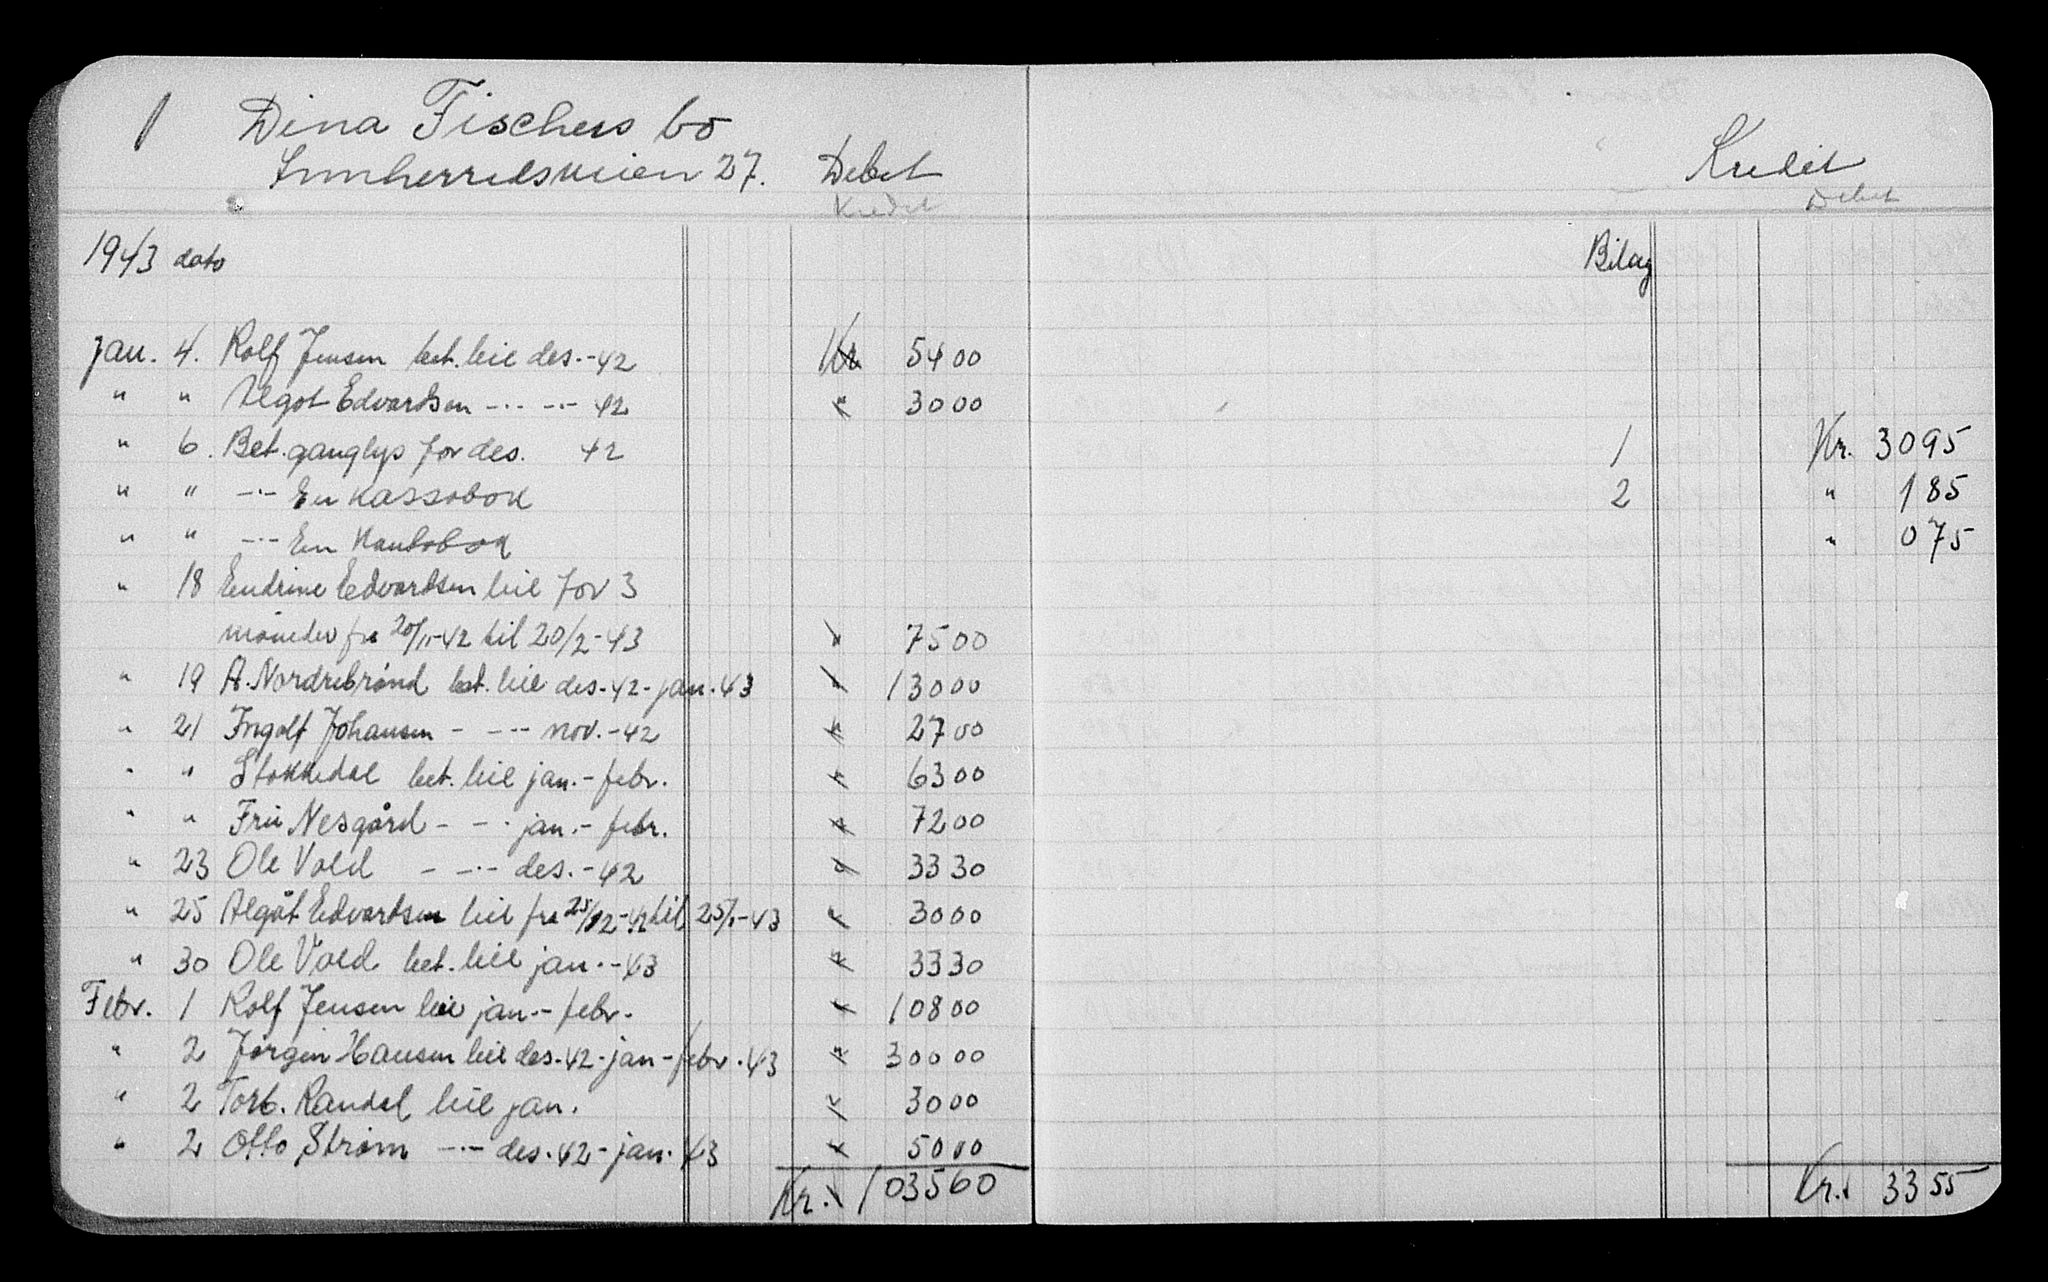 1 Dina Fischers bo
Innherredsveien 27. Debet Kredit
Kredit Debet
1943 dato Bilag
jan. 4. Rolf Jensen bet. leie des.-42 Kr 5400
" " Algot Edvardsen -.. -.- 42 " 3000
" 6. Bet. ganglys for des. 42 1 Kr. 3095
" " -.- En kassabok 2 " 185
" " -.- En Kontobok " 075
" 18 Endrine Edvardsen leie for 3
måneder fra 20/11-42 til 20/2-43 " 7500
" 19 A. Nordrebrønd bet. leie des.-42-jan.43 " 13000
" 21 Ingolf Johansen - -.- nov.-42 " 2700
" " Stokkedal bet. leie jan.-febr. " 6300
" " Fru Nesgård - -. jan.-febr. " 7200
" 23 Ole Vold - -.- des.-42 " 3330
" 25 Algot Edvardsen leie fra 25/12-42 til 25/1-43 " 3000
" 30 Ole Vold bet. leie jan.-43 " 3330
Febr. 1 Rolf Jensen leie jan.-febr. " 10800
" 2 Jørgen Hansen leie des.42-jan-febr.43 " 30000
" 2 Torb. Randal leie jan. " 3000
" 2 Otto Strøm -.- des.42-jan.43 " 5000
Kr. 103560 Kr. 3355